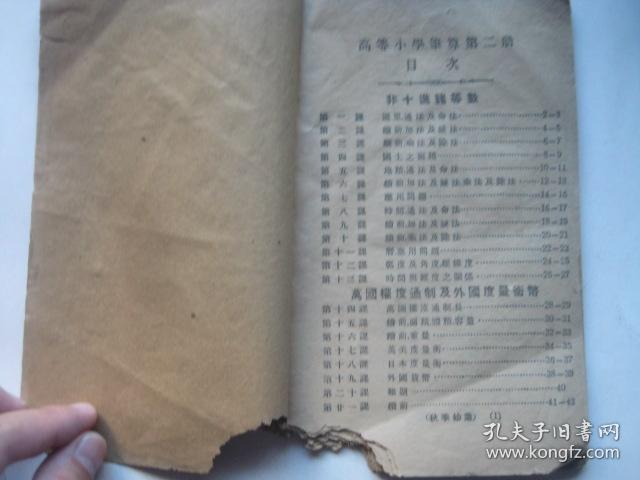 高等小學筆算第二册
目 次
非十進諸等數
第一課 里通法及命法 2—3
第二課 續前加法及減法 4—5
第三課 續前乘法及除法 6—7
第四課 國土之面積 8—9
第五課 地積通法及命法 10—11
第六課 續前加法及減法乘法及除法 12—13
第七課 應用問題 14—16
第八課 時間通法及命法 16—17
第九課 續前加法及減法 18—19
第十課 續前乘法及除法 20—21
第十一課 應用問題 22—23
第十二課 弧度及角度經緯度 24—25
第十三課 時間與經度之關係 26—27
萬國權度通制及外國度量衡幣
第十四課 萬國權度通制長 28—29
第十五課 續前面積體積容量 30—31
第十六課 續前重量 32—33
第十七課 英美度量衡 34—35
第十八課 日本度量衡 36—37
第十九課 外國貨幣 38—39
第二十課 題 40
第廿一課 續前 41—43
(秋季始業) (1)
孔夫子旧书网
www.kongfz.com